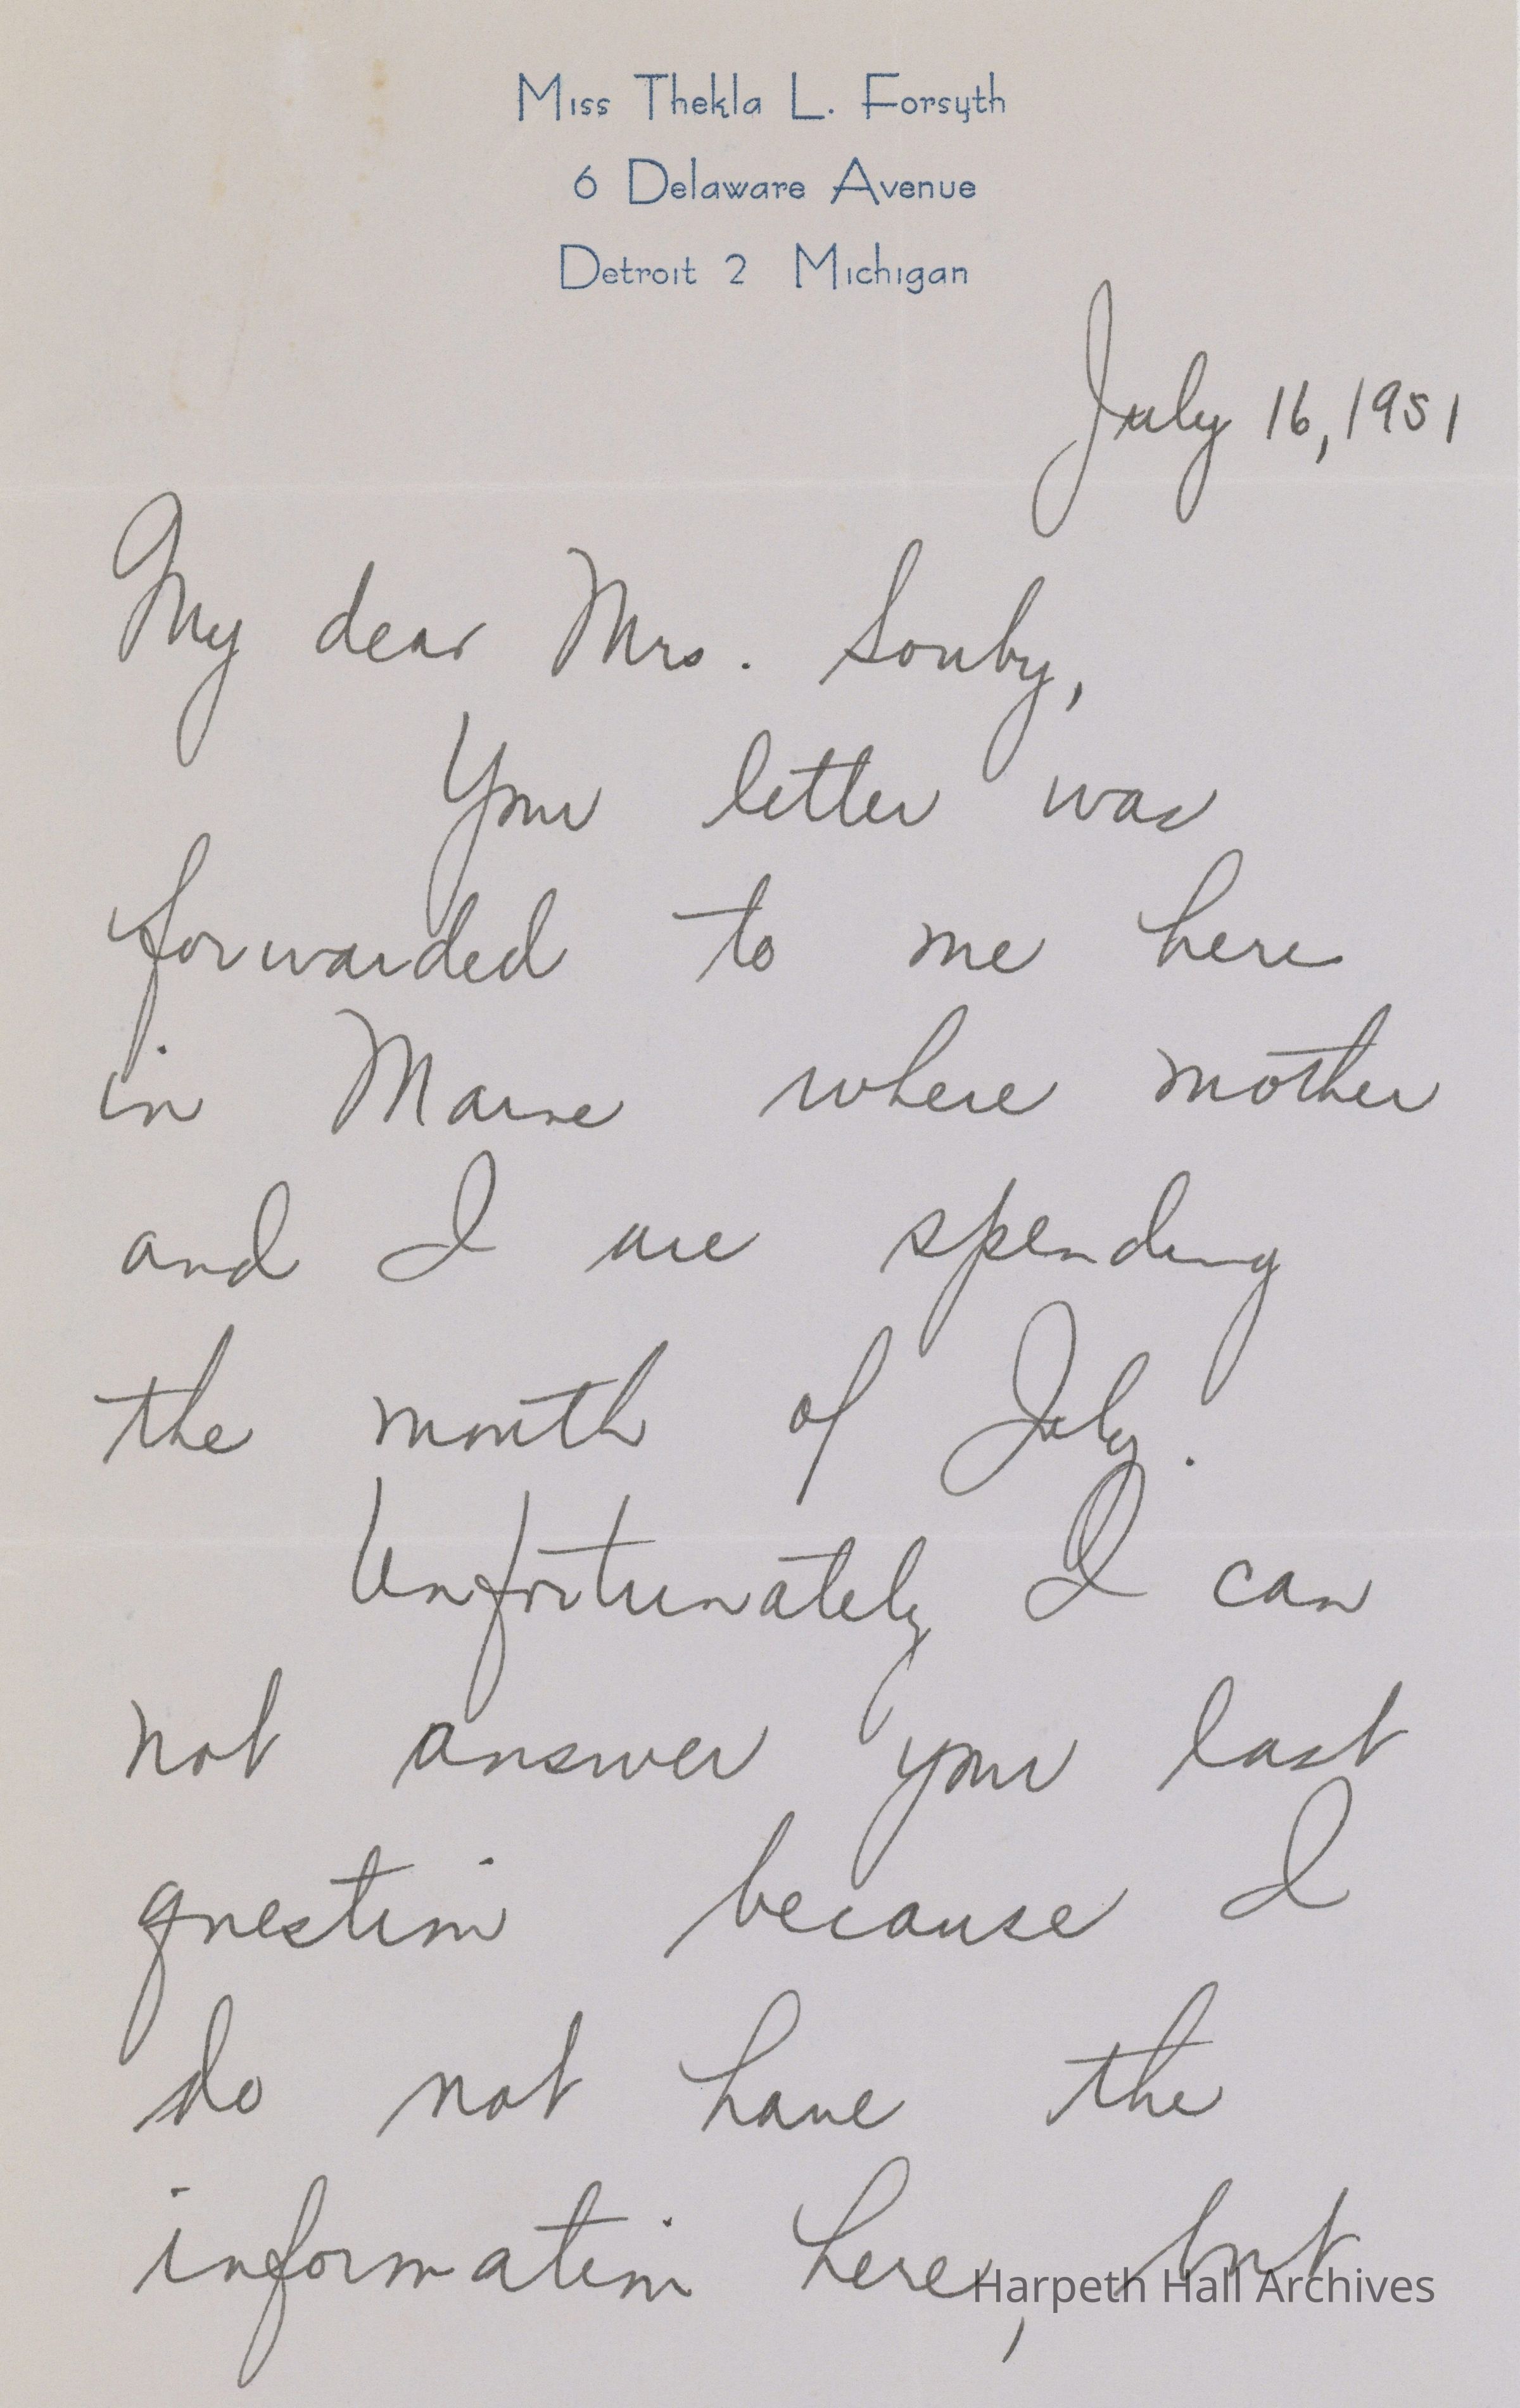 Miss Thekla L. Forsyth
6 Delaware Avenue
Detroit 2 Michigan
July 16, 1951
My dear Mrs. Souby,
Your letter was
forwarded to me here
in Maine where mother
and I are spending
the month of July.
Unfortunately I can
not answer your last
question because I
do not have the
information here, but
Harpeth Hall Archives